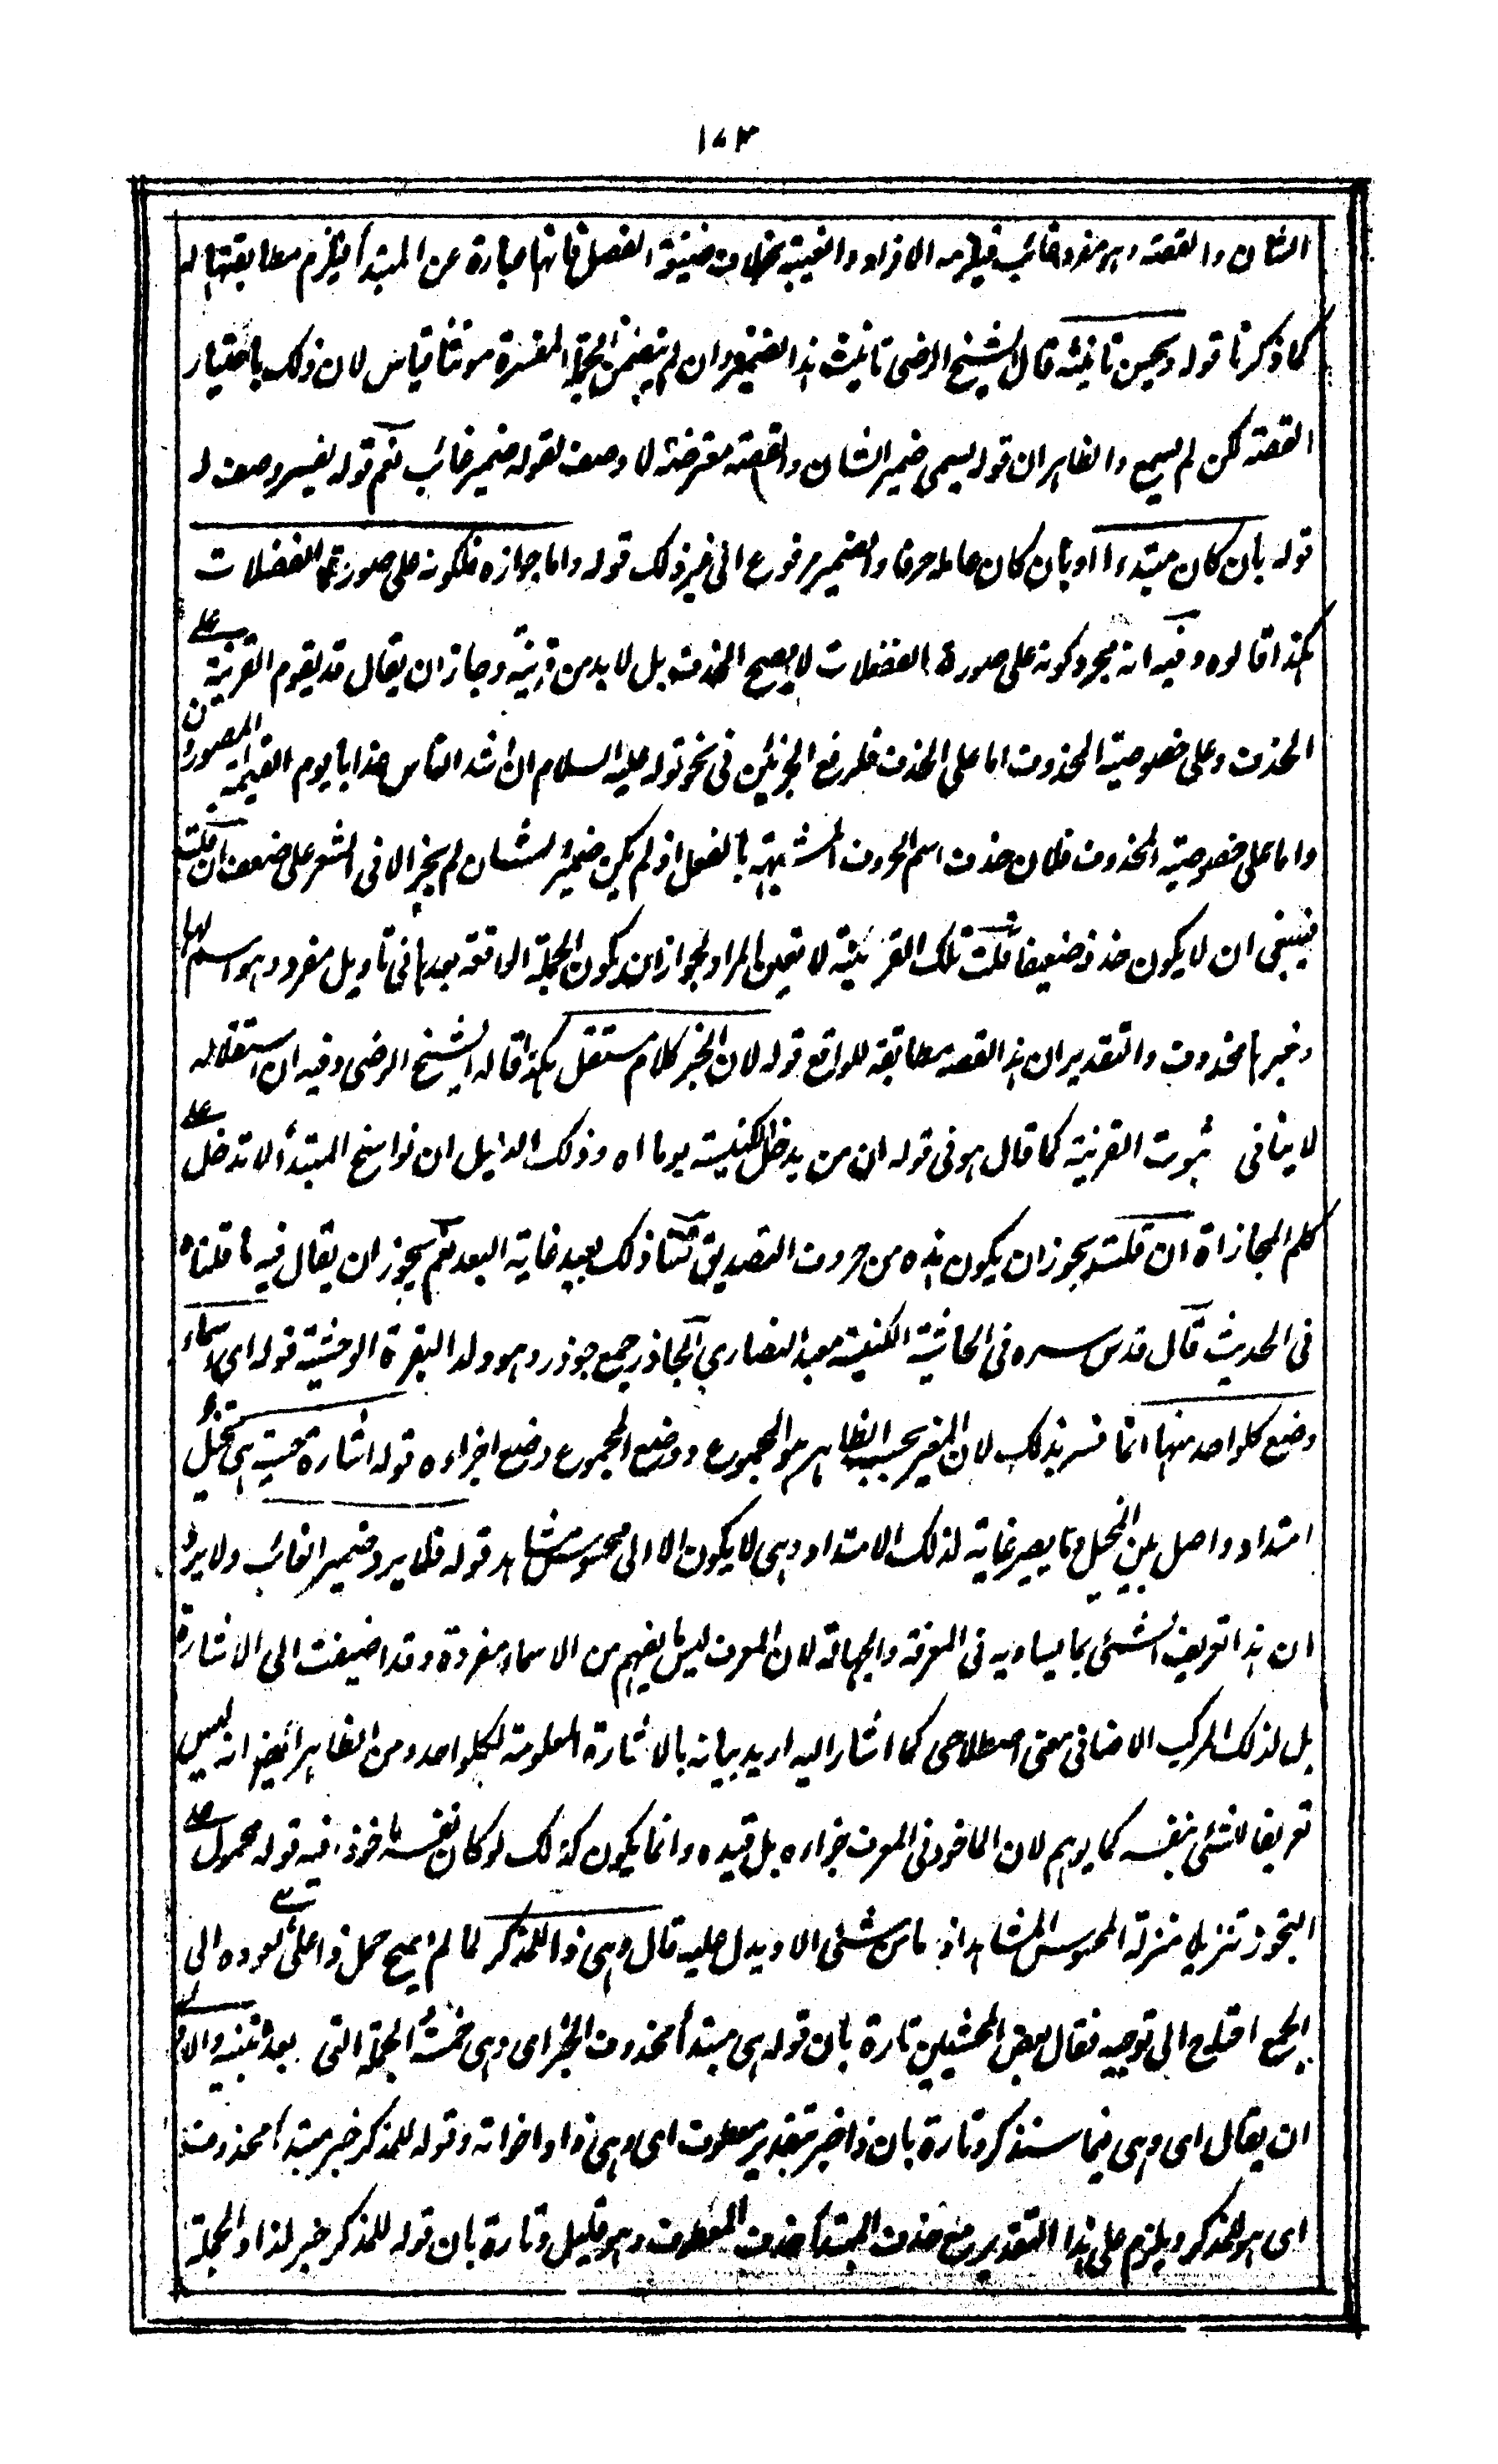 ١٧٣
الشان والقصته وہو مفرد غائب فیلزمہ الافراد والغیبتہ بخلاف ضیغۃ الفصل فانہا عبارة عن المبتدأ فیلزم مطابقتہا لہ
کما ذکرنا قولہ ویحسن تانیثہ قال الشیخ الرضی تانیث ہذا الضمیر وان لم یتضمن الجملۃ المفسرة مونثا قیاس لان ذلک باعتبار
القصتہ لکن لم یسمع والظاہر ان قولہ یسمی ضمیر الشان والقصتہ معترضتہ لا وصف لقولہ ضمیر غائب نعم قولہ یفسر وصف لہ
قولہ بان کان مبتدءا او بان کان عاملہ حرفا والضمیر مرفوع الی غیر ذلک قولہ واما جوازہ فلکونہ علی صورة الفضلات
ہکذا قالوہ وفیہ انہ مجرد کونہ علی صورة الفضلات لا یصحح الحذف بل لا بد من قرینۃ وجاز ان یقال قد یقوم القرینۃ علی
الحذف وعلی خصوصیۃ المحذوف اما علی الحذف فلرفع الجزئین فی نحو قولہ علیہ السلام ان اشد الناس عذابا یوم القیمۃ المصورون
واما علی خصوصیتہ المحذوف فلان حذف اسم الحروف المشبہتہ بالفعل اذ لم یکن ضمیر الشان لم یجز الا فی الشعر علی ضعف ان قلت
فینبغی ان لا یکون حذفہ ضعیفا قلت تلک القرینۃ لا تعین المراد لجواز ان یکون الجملۃ الواقعۃ بعدہا فی تاویل مفرد وہو اسم لہا
وخبرہا محذوف والتقدیر ان ہذا القصۃ مطابقۃ للواقع قولہ لان الخبر کلام مستقل ہکذا قالہ الشیخ الرضی وفیہ ان استقلالہ
لا ینافی ثبوت القرینۃ کما قال ہو فی قولہ ان من یدخل الکنیستہ یوما اہ وذلک الدلیل ان نواسخ المبتدأ لا تدخل علی
کلم المجازاة ان قلت یجوز ان یکون ہذہ من حروف التصدیق قلنا ذلک بعید غایۃ البعد نعم یجوز ان یقال فیہ ما قلناہ
فی الحدیث قال قدس سرہ فی الحاشیۃ الکنیستہ معبد النصاری الجاذر جمع جوذر وہو ولد البقرة الوحشیۃ قولہ ای اسماء
وضع کلواحد منہا انما فسر بذلک لان المفسر بحسب الظاہر ہو المجموع ووضع المجموع وضع اجزاءہ قولہ اشارة حسیۃ ہی تخیل
امتداد واصل بین المخیل وما یصیر غایۃ لذلک الامتداد وہی لا یکون الا الی محسوس مشاہد قولہ فلا یرد ضمیر الغائب ولا یرد
ان ہذا تعریف الشئ بما یساویہ فی المعرفۃ والجہالۃ لان المعرف لیس ما یفہم من الاسماء مفردة وقد اضیفت الی الاشارة
بل لذلک المرکب الاضافی معنی اصطلاحی کما اشار الیہ ارید بیانہ بالاشارة المعلومۃ لکلواحد ومن الظاہر ایضا انہ لیس
تعریفا للشئ بنفسہ کما یوہم لان الماخوذ فی المعرف جزاءہ بل قیدہ وانما یکون کذلک لو کان نفسہ ماخوذا فیہ قولہ محمول علی
التجوز تنزیلا منزلۃ المحسوس المشاہد اذ ما من شئ الا ویدل علیہ قال وہی ذا للمذکر لما لم یصح حمل ذا علی ہی لعودہ الی
الجمع احتاج الی توجیہ فقال بعض المحشیین تارة بان قولہ ہی مبتدأ محذوف الخبر ای وہی خمستہ الجملۃ التی بعدہ مبینۃ والاولی
ان یقال ای وہی فیما سنذکر وتارة بان ذا خبر بتقدیر معطوف ای وہی ذا واخواتہ وقولہ للمذکر خبر مبتدأ محذوف
ای ہو للمذکر ویلزم علی ہذا التقدیر مع حذف المبتدأ حذف المعطوف وہو قلیل وتارة بان قولہ للمذکر خبر لذا والجملۃ